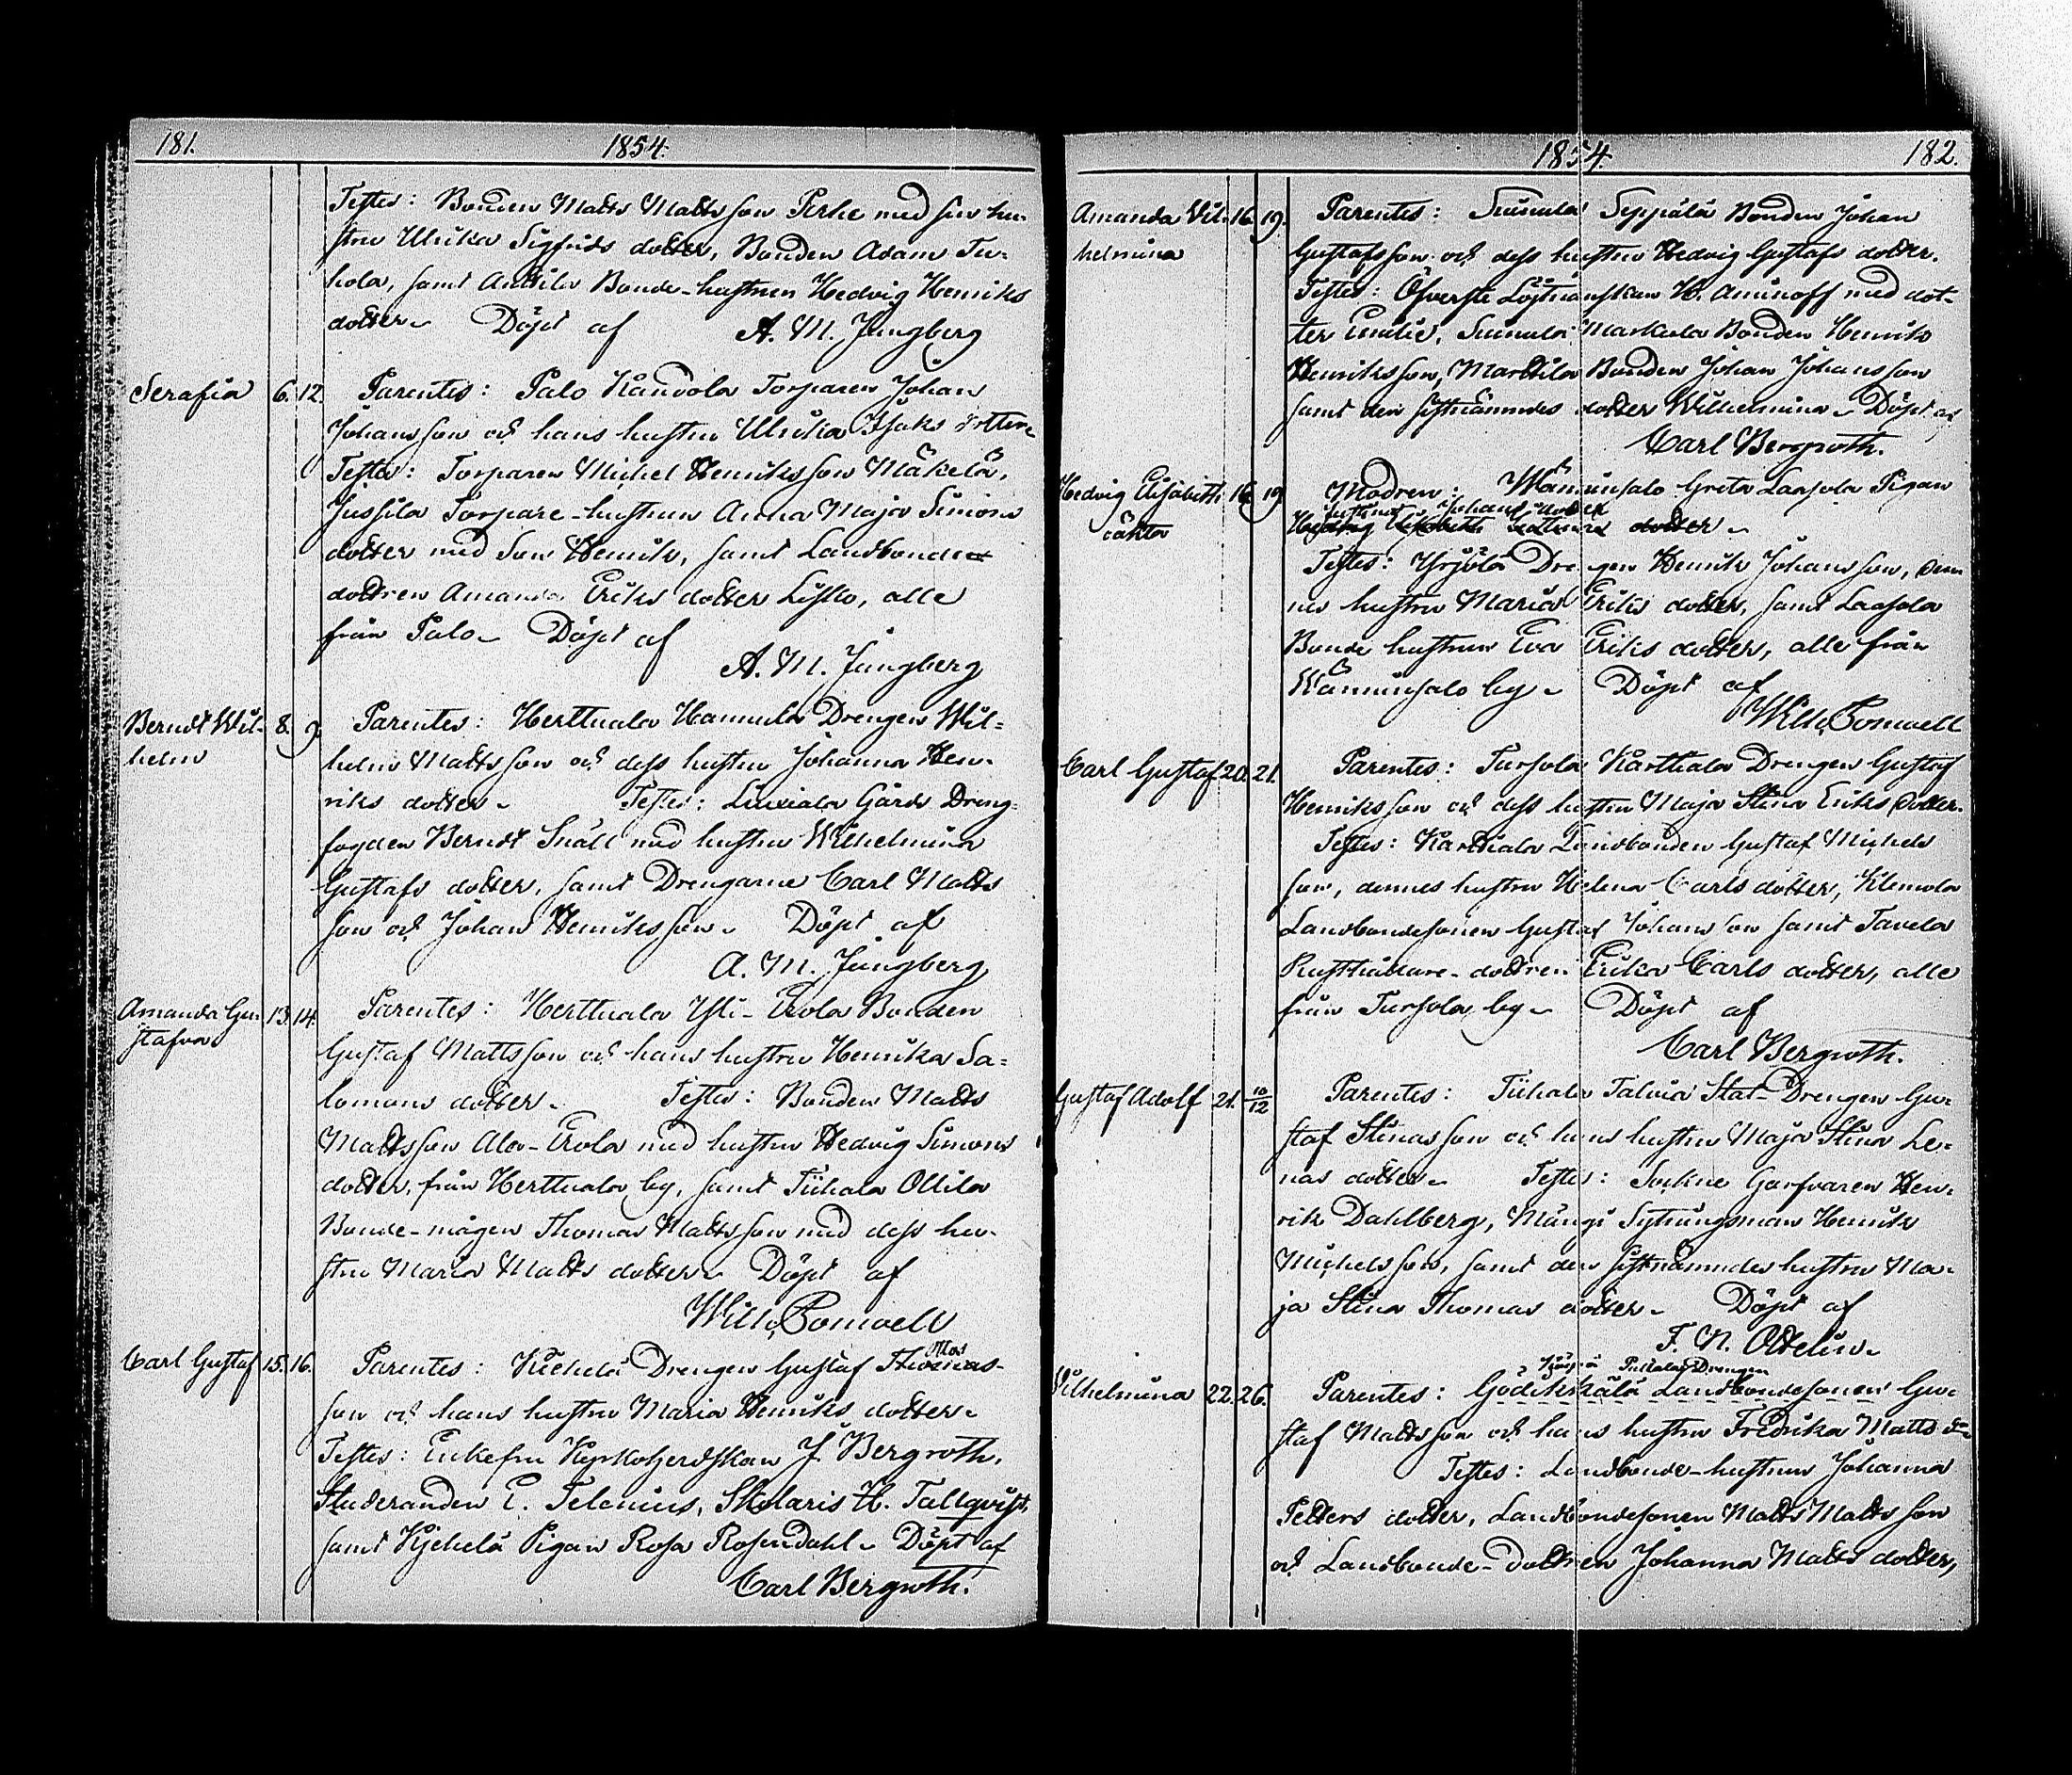 181. 1854.
Testes: Bonden Matts Mattsson Perhe med sin hu-
stru Ulrika Sigfrids dotter, Bonden Adam Tu-
hola, samt Anttila Bonde-hustrun Hedvig Henriks
dotter. Döpt af A. M. Jungberg
Serafia 6. 12. Parentes: Palo Kandola Torparen Johan
Johansson och hans hustru Ulrika Isaks dotter
Testes: Torparen Michel Henriksson Mäkelä,
Jussila Torpare-hustrun Anna Maja Simons
dotter med Son Henrik, samt Landbonde
dottren Amanda Eriks dotter Lisko, alla
från Palo. Döpt af
A. M. Jungberg
Berndt Wil- 8. 9. Parentes: Herttuala Hannula Drengen Wil-
helm helm Mattsson och dess hustru Johanna Hen-
riks dotter. Testes: Liuxiala Gårds Dreng-
fogden Berndt Snäll med hustru Wilhelmina
Gustafs dotter, samt Drengarne Carl Matts
son och Johan Henriksson. Döpt af
A. M. Jungberg
Amanda Gu- 13. 14. Parentes: Herttuala Yli-Erola Bonden
stafva Gustaf Mattsson och hans hustru Henrika Sa-
lomons dotter. Testes: Bonden Matts
Mattsson Ala-Erola med hustru Hedvig Simons
dotter, från Herttuala by, samt Tiihala Ollila
Bonde-mågen Thomas Mattsson med dess hu-
stru Maria Matts dotter. Döpt af
Wilh. Pomoell
Mats
Carl Gustaf 15. 16. Parentes: Kjehelä Drengen Gustaf Thomas-
son och hans hustru Maria Henriks dotter.
Testes: Enkefru Kyrkoherdskan J. Bergroth,
Studeranden E. Telenius, Skolaris H. Tallqvist,
samt Kjehelä Pigan Rosa Rosendahl. Döpt af
Carl Bergroth.
1854. 182.
Amanda Vil- 16. 19. Parentes: Suinula Seppälä Bonden Johan
helmina Gustafsson och dess hustru Hedvig Gustafs dotter.
Testes: Öfverste Löjtnanskan H. Aminoff med dot-
ter Emilie, Suinula Markula Bonden Henrik
Henriksson, Marttila Bonden Johan Johansson
samt den sistnämndes dotter Wilhelmina. Döpt af
Carl Bergroth.
Hedvig Elisabeth 16. 19. Modren: Wäninsalo Greta Laasola Pigan
Justina Johans dotter
oäkta Hedvig Elisabeth dotter.
Testes: Yrjölä Drengen Henrik Johansson, den-
nes hustru Maria Eriks dotter, samt Laasola
Bonde hustrun Eva Eriks dotter, alla från
Wäninsalo by. Döpt af
Wilh. Pomoell
Carl Gustaf 20. 21. Parentes: Tursola Karttiala Drengen Gustaf
Henriksson och dess hustru Maja Stina Eriks dotter.
Testes: Karttiala Landbonden Gustaf Michels
son, dennes hustru Helena Carls dotter, Klemola
Landbondesonen Gustaf Johansson samt Tavela
Rusthållare-dottren Erika Carls dotter, alla
från Tursola by. Döpt af
Carl Bergroth.
Gustaf Adolf 21. 10/12 Parentes: Tiihala Talvia Stat-Drengen Gu-
staf Stinasson och hans hustru Maja Stina Le-
nas dotter. Testes: Sockne Garfvaren Hen-
rik Dahlberg, Mångi Sytningsman Henrik
Michelsson, samt den sistnämndes hustru Ma-
ja Stina Thomas dotter. Döpt af
F. N. Odelin.
Drengen
Vilhelmina 22. 26. Parentes: Gödikskälä Landbondesonen Gu-
staf Mattsson och hans hustru Fredrika Matts dr
Testes: Landbonde-hustrun Johanna
Petters dotter, Landbondesonen Matts Mattsson
och Landbonde-dottren Johanna Matts dotter,